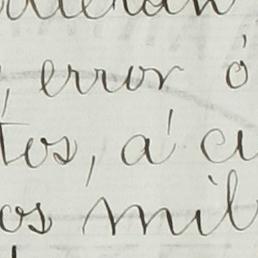 , error ó
tos, á ci
os mil